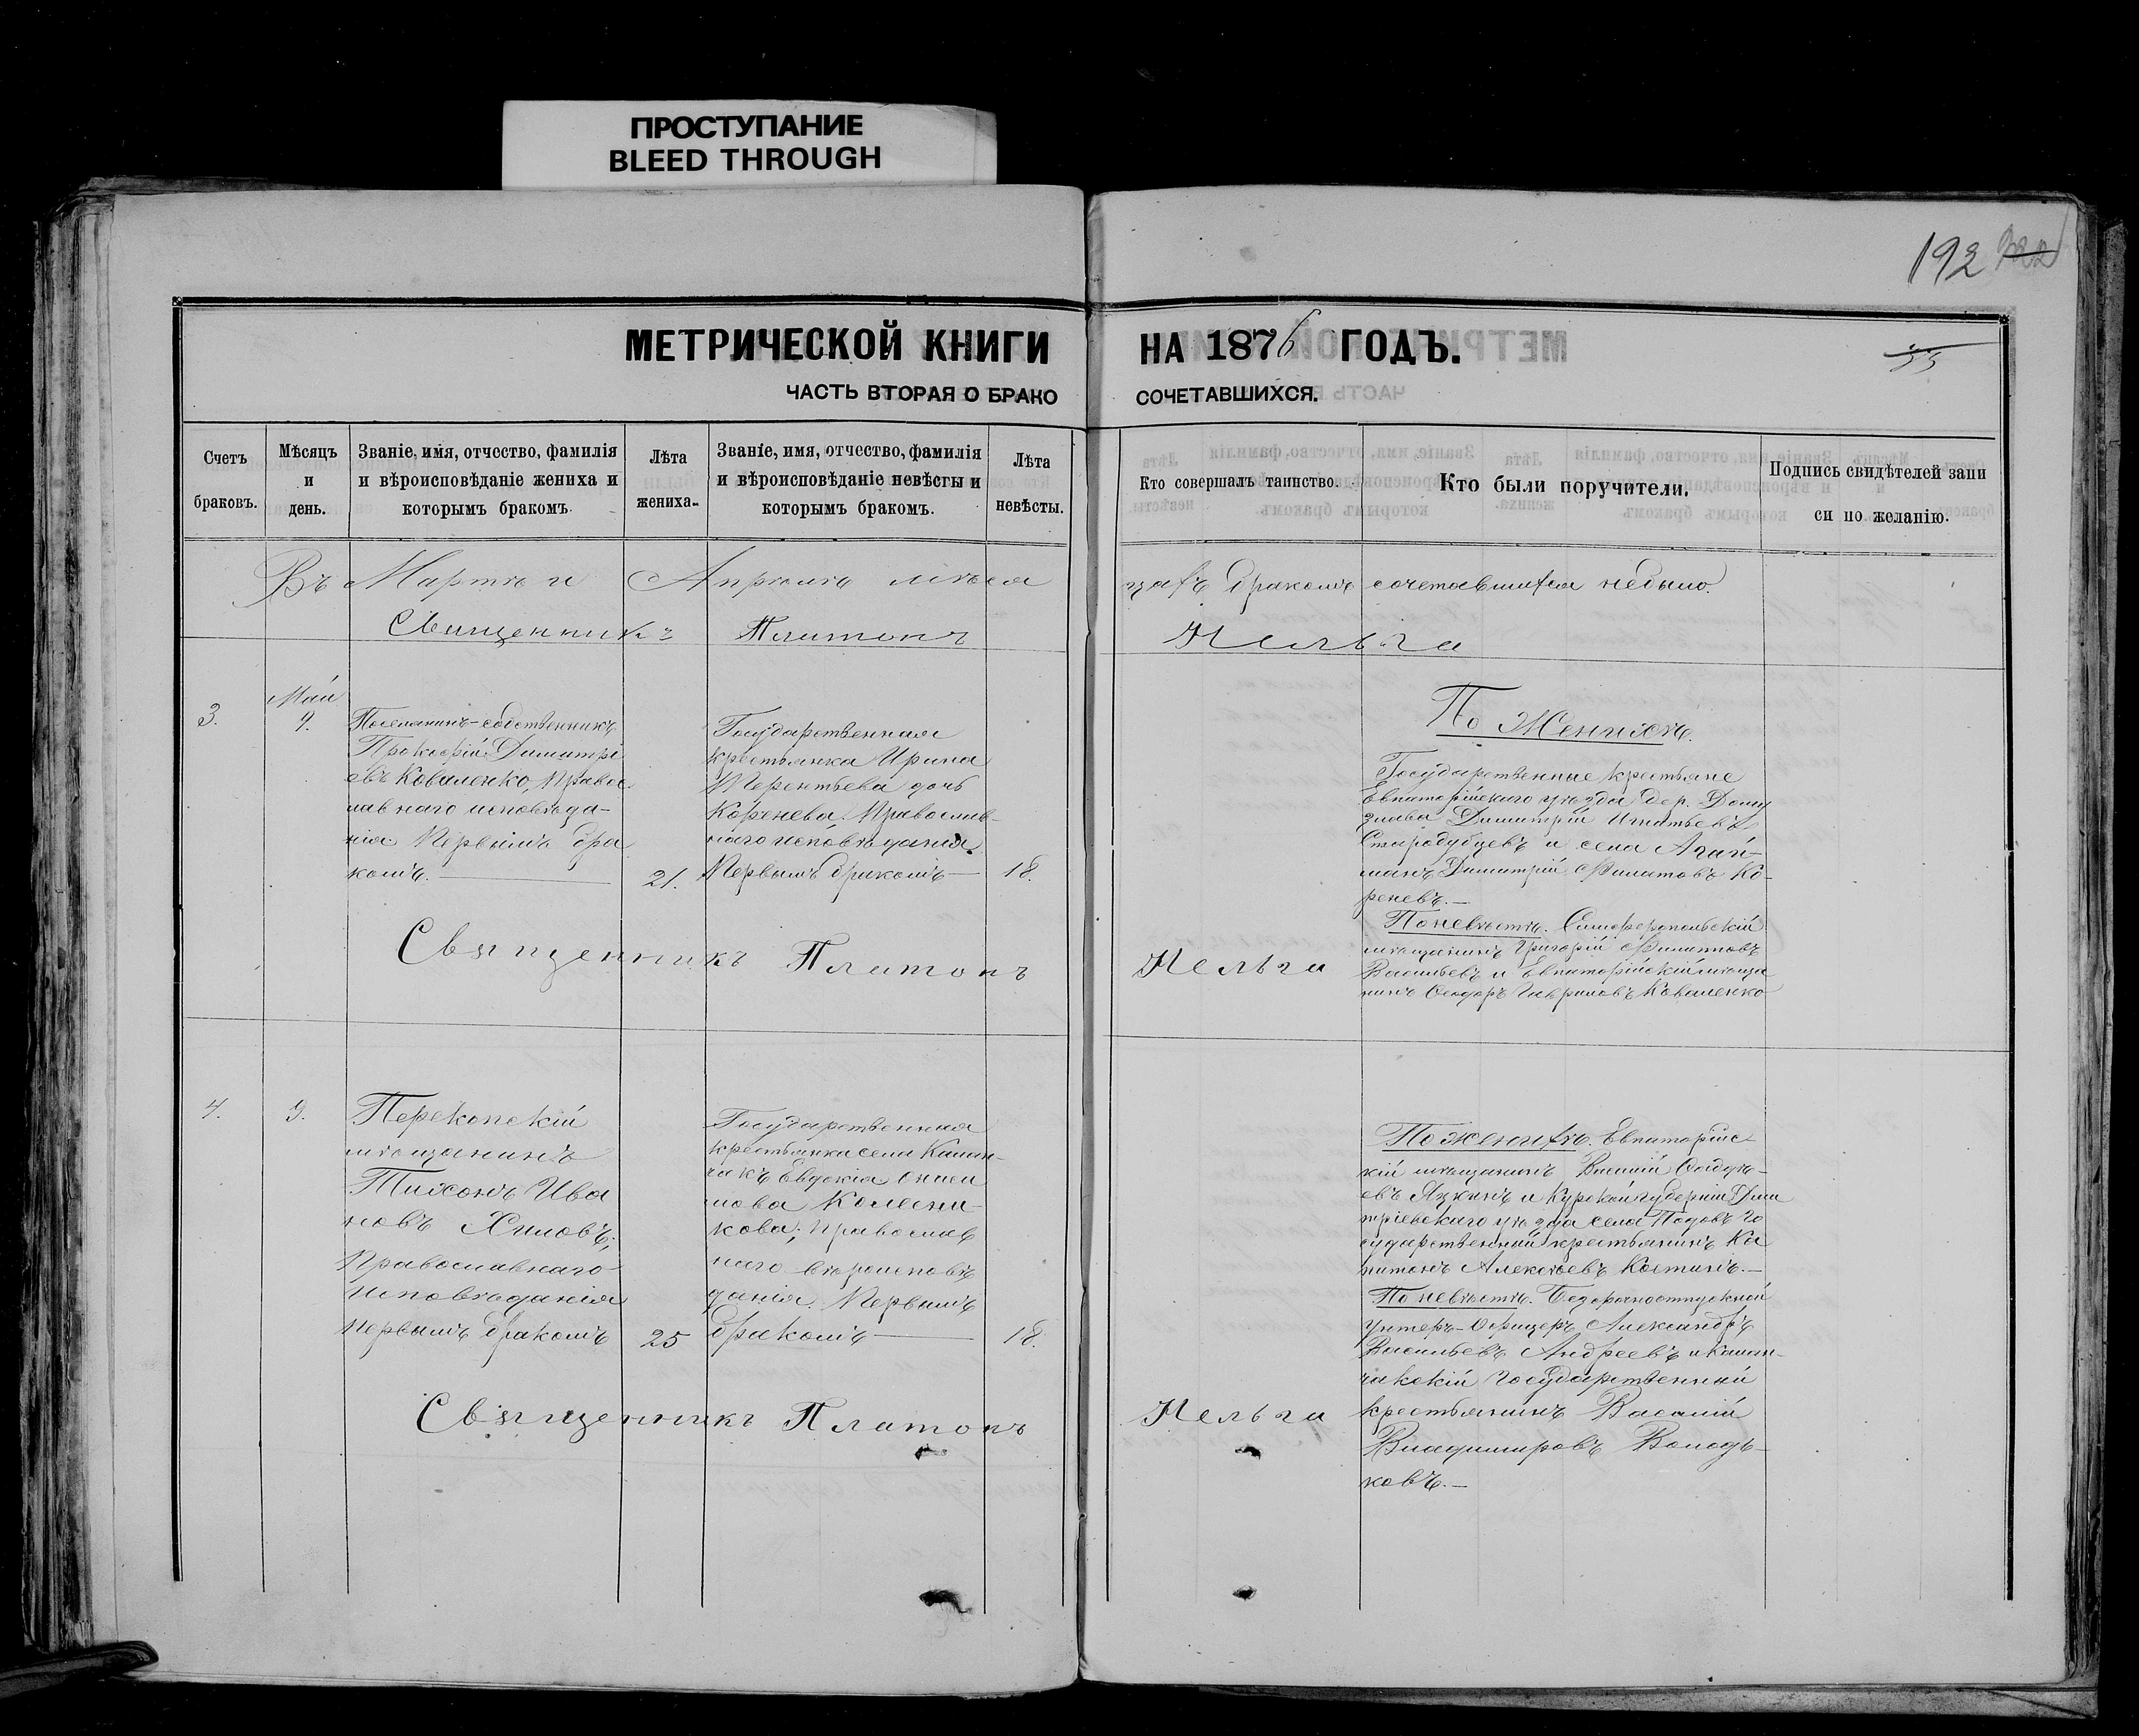 ПРОСТУПАНИЕ
BLEED THROUGH
192
МЕТРИЧЕСКОЙ КНИГИ НА 1876 ГОДЪ.
ЧАСТЬ ВТОРАЯ О БРАКО СОЧЕТАВШИХСЯ.
Счетъ
браковъ.
Мѣсяцъ
и
день.
Званіе, имя, отчество, фамилія
и вѣроисповѣданіе жениха и
которымъ бракомъ.
Лѣта
жениха.
Званіе, имя, отчество, фамилія
и вѣроисповѣданіе невѣсты и
которымъ бракомъ.
Лѣта
невѣсты.
Кто совершалъ таинство.
Кто были поручители.
Подпись свидѣтелей запи
си по желанію.
Въ Мартѣ и Апрѣлѣ мѣся
цахъ бракомъ сочетавшихся небыло.
Священникъ Платонъ
Нельга
3.
Май
9.
Поселянинъ-собственникъ
Прокофій Димитрі
евъ Коваленко, Правос
лавнаго исповѣда-
нія Первымъ бра
комъ.
21.
Государственная
крестьянка Ирина
Терентьева дочь
Коренева. Православ-
наго исповѣданія.
Первымъ бракомъ
18.
По Женихѣ.
Государственные крестьяне
Евпаторійскаго уѣзда дер. Дону
злава Димитрій Игнатьевъ
Стародубцевъ и села Агай-
манъ Димитрій Филатовъ Ко-
реневъ.
По невѣстѣ. Симферопольскій
мѣщанинъ Григорій Филиповъ
Васильевъ и Евпаторійскій мѣща
нинъ Феодоръ Гавриловъ Коваленко
Священникъ Платонъ
Нельга
4.
9.
Перекопскій
мѣщанинъ
Тихонъ Ива
новъ Хиловъ;
Православнаго
исповѣданія
первымъ бракомъ
25
Государственная
крестьянка села Калан-
чакъ Евдокія Ониси
мова Колесни-
кова; Православ
наго вѣроисповѣ
данія. Первымъ
бракомъ
18.
По женихѣ. Евпаторійс-
кій мѣщанинъ Василій Фадѣ-
евъ Язкинъ и Курской губерніи Дми
тріевскаго уѣзда села Подовъ Го
сударственный крестьянинъ Ка
питонъ Алексѣевъ Костинъ.
По невѣстѣ. Безсрочноотпускной
Унтеръ-Офицеръ Александръ
Васильевъ Андреевъ и Калан-
чакскій Государственный
крестьянинъ Василій
Владимировъ Володь-
ковъ.
Священникъ Платонъ
Нельга